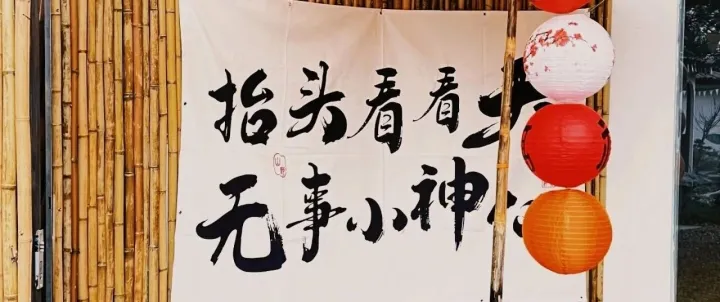 抬头看看
无事小神